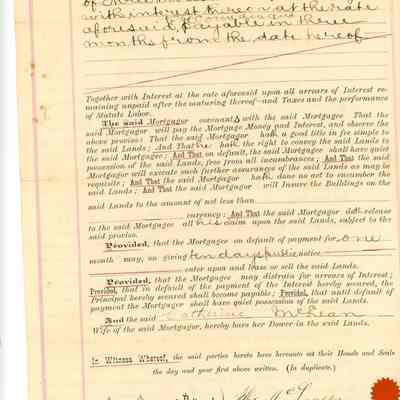 with interest thereon at the rate
aforesaid, payable in three
months from the date hereof
Together with Interest at the rate aforesaid upon all arrears of Interest re-
maining unpaid after the maturing thereof—and Taxes and the performance
of Statute Labor.
The said Mortgagor covenants with the said Mortgagee That the
said Mortgagor will pay the Mortgage Money and Interest, and observe the
above proviso: That the said Mortgagor hath a good title in fee simple to
the said Lands; And That he hath the right to convey the said Lands to
the said Mortgagee; And That on default, the said Mortgagee shall have quiet
possession of the said Lands, free from all incumbrances; And That the said
Mortgagor will execute such further assurances of the said Lands as may be
requisite; And That the said Mortgagor hath done no act to encumber the
said Lands; And That the said Mortgagor will Insure the Buildings on the
said Lands to the amount of not less than
currency; And That the said Mortgagor doth release
to the said Mortgagee all his claim upon the said Lands, subject to the
said proviso.
Provided, that the Mortgagee on default of payment for one
month may, on giving ten days notice
enter upon and lease or sell the said Lands.
Provided, that the Mortgagee may distrain for arrears of Interest;
Provided, that in default of the payment of the Interest hereby secured, the
Principal hereby secured shall become payable; Provided, that until default of
payment the Mortgagor shall have quiet possession of the said Lands.
And the said Catherine McLean
Wife of the said Mortgagor, hereby bars her Dower in the said Lands.
In Witness Whereof, the said parties hereto have hereunto set their Hands and Seals
the day and year first above written. (In duplicate.)